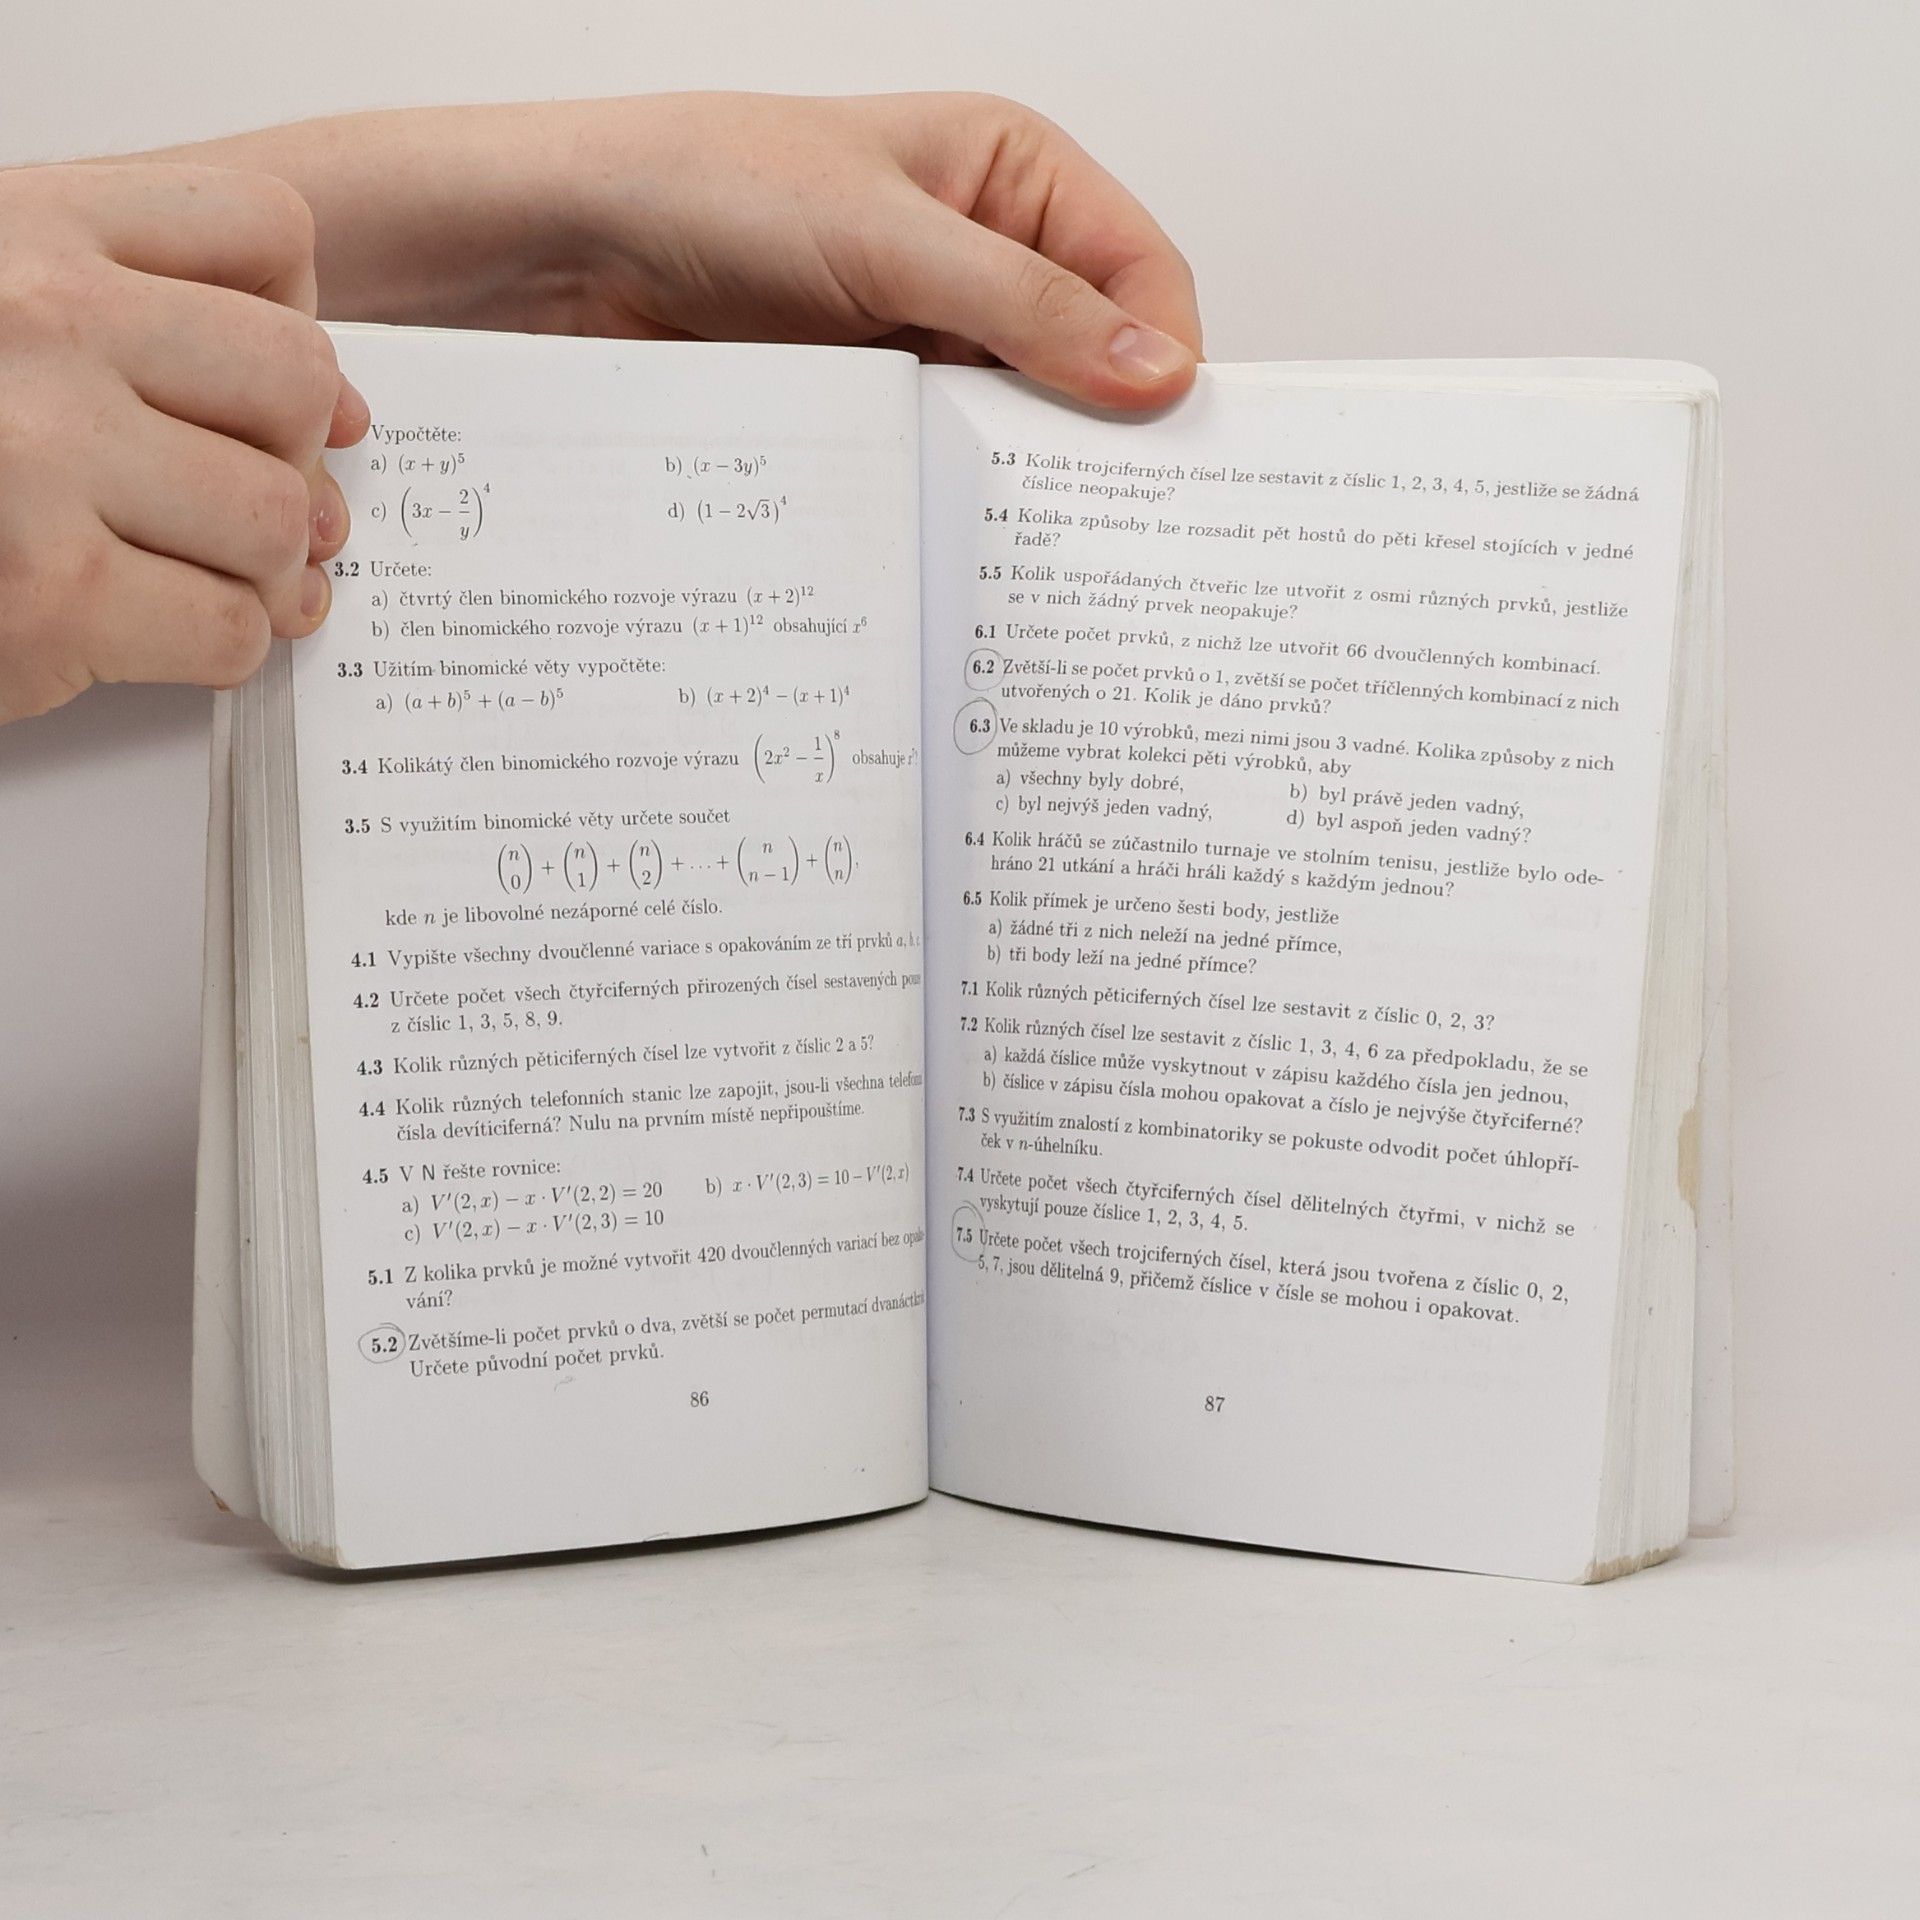 Vypočtěte:
a) (x + y)⁵ b) (x − 3y)⁵
c) (3x − 2/y)⁴ d) (1 − 2√3)⁴
3.2 Určete:
a) čtvrtý člen binomického rozvoje výrazu (x + 2)¹²
b) člen binomického rozvoje výrazu (x + 1)¹² obsahující x⁶
3.3 Užitím binomické věty vypočtěte:
a) (a + b)⁵ + (a − b)⁵ b) (x + 2)⁴ − (x + 1)⁴
3.4 Kolikátý člen binomického rozvoje výrazu (2x² − 1/x)⁸ obsahuje
3.5 S využitím binomické věty určete součet
(n 0) + (n 1) + (n 2) + . . . + (n n − 1) + (n n),
kde n je libovolné nezáporné celé číslo.
4.1 Vypište všechny dvoučlenné variace s opakováním ze tří prvků a, b, c
4.2 Určete počet všech čtyřciferných přirozených čísel sestavených
z číslic 1, 3, 5, 8, 9.
4.3 Kolik různých pěticiferných čísel lze vytvořit z číslic 2 a 5?
4.4 Kolik různých telefonních stanic lze zapojit, jsou-li všechna
čísla devíticiferná? Nulu na prvním místě nepřipouštíme.
4.5 V N řešte rovnice:
a) V′(2, x) − x · V′(2, 2) = 20 b) x · V′(2, 3) = 10 − V′(2, x)
c) V′(2, x) − x · V′(2, 3) = 10
5.1 Z kolika prvků je možné vytvořit 420 dvoučlenných variací bez
vání?
5.2 Zvětšíme-li počet prvků o dva, zvětší se počet permutací
Určete původní počet prvků.
86
5.3 Kolik trojciferných čísel lze sestavit z číslic 1, 2, 3, 4, 5, jestliže se žádná
číslice neopakuje?
5.4 Kolika způsoby lze rozsadit pět hostů do pěti křesel stojících v jedné
řadě?
5.5 Kolik uspořádaných čtveřic lze utvořit z osmi různých prvků, jestliže
se v nich žádný prvek neopakuje?
6.1 Určete počet prvků, z nichž lze utvořit 66 dvoučlenných kombinací.
6.2 Zvětší-li se počet prvků o 1, zvětší se počet tříčlenných kombinací z nich
utvořených o 21. Kolik je dáno prvků?
6.3 Ve skladu je 10 výrobků, mezi nimi jsou 3 vadné. Kolika způsoby z nich
můžeme vybrat kolekci pěti výrobků, aby
a) všechny byly dobré, b) byl právě jeden vadný,
c) byl nejvýš jeden vadný, d) byl aspoň jeden vadný?
6.4 Kolik hráčů se zúčastnilo turnaje ve stolním tenisu, jestliže bylo ode-
hráno 21 utkání a hráči hráli každý s každým jednou?
6.5 Kolik přímek je určeno šesti body, jestliže
a) žádné tři z nich neleží na jedné přímce,
b) tři body leží na jedné přímce?
7.1 Kolik různých pěticiferných čísel lze sestavit z číslic 0, 2, 3?
7.2 Kolik různých čísel lze sestavit z číslic 1, 3, 4, 6 za předpokladu, že se
a) každá číslice může vyskytnout v zápisu každého čísla jen jednou,
b) číslice v zápisu čísla mohou opakovat a číslo je nejvýše čtyřciferné?
7.3 S využitím znalostí z kombinatoriky se pokuste odvodit počet úhlopří-
ček v n-úhelníku.
7.4 Určete počet všech čtyřciferných čísel dělitelných čtyřmi, v nichž se
vyskytují pouze číslice 1, 2, 3, 4, 5.
7.5 Určete počet všech trojciferných čísel, která jsou tvořena z číslic 0, 2,
5, 7, jsou dělitelná 9, přičemž číslice v čísle se mohou i opakovat.
87